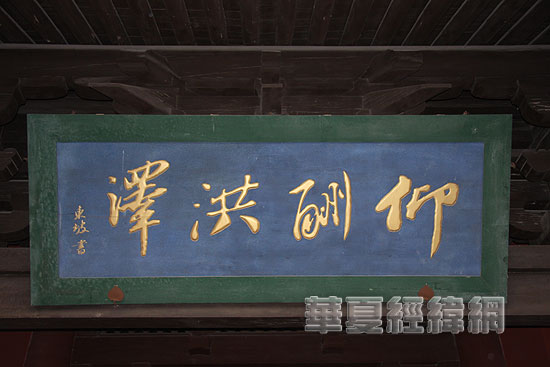 仰酬洪澤
東坡書
華夏經緯網